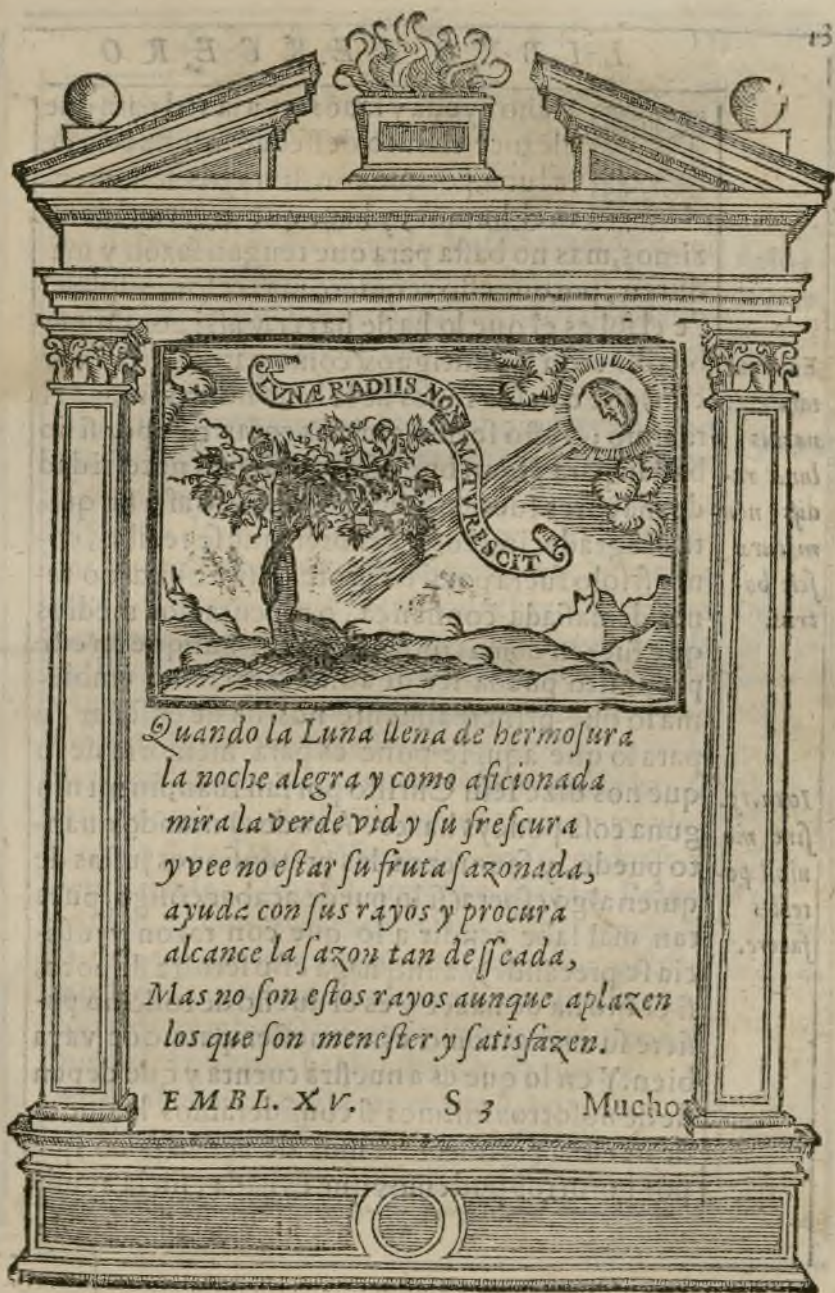 LVNÆ RADIIS NON MATVRESCIT
Quando la Luna llena de hermoſura
la noche alegra y como aficionada
mira la verde vid y ſu freſcura
y vee no eſtar ſu fruta ſazonada,
ayuda con ſus rayos y procura
alcance la ſazon tan deſſeada,
Mas no ſon eſtos rayos aunque aplazen
los que ſon meneſter y ſatisfazen.
EMBL. XV. S 3 Mucho